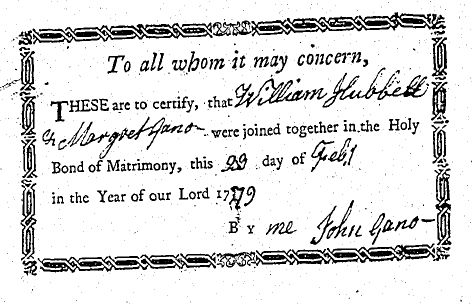 To all whom it may concern,
THESE are to certify, that William Hubbell
& Margret Gano were joined together in the Holy
Bond of Matrimony, this 23 day of Feb
in the Year of our Lord 1779
BY me John Gano